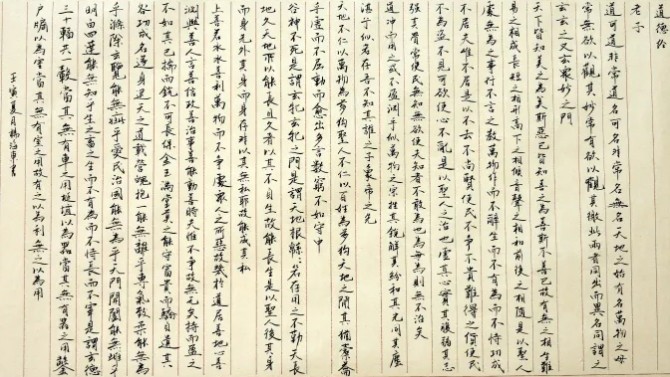 道德经
老子
道可道非常道名可名非常名無名天地之始有名萬物之母
常無欲以觀其妙常有欲以觀其徼此兩者同出而異名同謂之
玄玄之又玄衆妙之門
天下皆知美之為美斯惡已皆知善之為善斯不善已故有無之相生難
易之相成長短之相形高下之相傾音聲之相和前後之相隨是以聖人
處無為之事行不言之教萬物作而不辭生而不有為而不恃功成
不居夫唯不居是以不去不尚賢使民不爭不貴難得之貨使民
不為盜不見可欲使心不亂是以聖人之治也虛其心實其腹弱其志
強其骨常使民無知無欲使夫知者不敢為也為無為則無不治矣
道沖而用之或不盈淵乎似萬物之宗挫其銳解其紛和其光同其塵
湛兮似若存吾不知其誰之子象帝之先
天地不仁以萬物為芻狗聖人不仁以百姓為芻狗天地之間其猶橐籥
乎虛而不屈動而愈出多言數窮不如守中
谷神不死是謂玄牝玄牝之門是謂天地根緜緜若存用之不勤天長
地久天地所以能長且久者以其不自生故能長生是以聖人後其身
而身先外其身而身存非以其無私耶故能成其私
上善若水水善利萬物而不爭處衆人之所惡故幾於道居善地心善
淵與善人言善信政善治事善能動善時夫唯不爭故無尤矣持而盈之
不如其已揣而銳不可長保金玉滿堂莫之能守富貴而驕自遺其
咎功成名遂身退天之道載營魄抱一能無離乎專氣致柔能無為
乎滌除玄覽能無疵乎愛民治國能無為乎天門開闔能無雌乎
明白四達能無知乎生之畜之生而不有為而不恃長而不宰是謂玄德
三十輻共一轂當其無有車之用埏埴以為器當其無有器之用鑿
戶牖以為室當其無有室之用故有之以為利無之以為用
壬寅夏月楊海東書